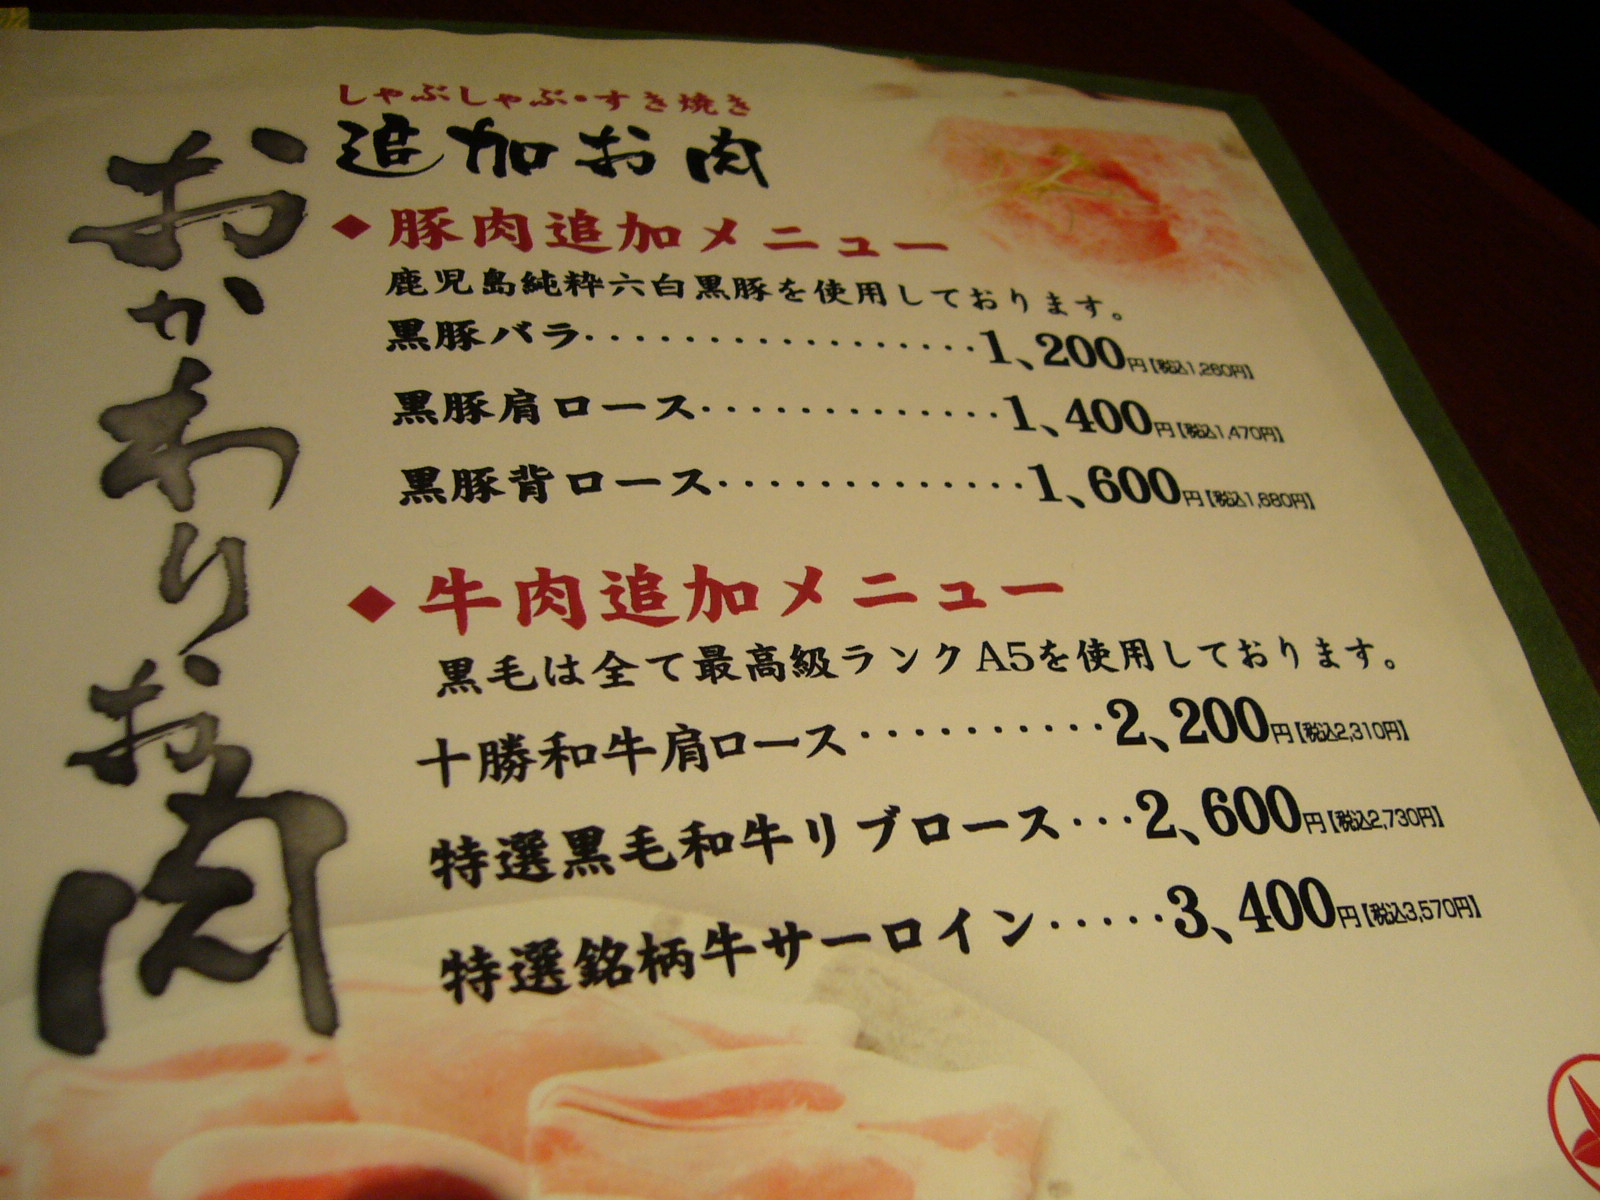 おかわりお肉
しゃぶしゃぶ・すき焼き
追加お肉
◆豚肉追加メニュー
鹿児島純粋六白黒豚を使用しております。
黒豚バラ··················1、200円【税込1,260円】
黒豚肩ロース··············1、400円【税込1,470円】
黒豚背ロース··············1、600円【税込1,680円】
◆牛肉追加メニュー
黒毛は全て最高級ランクA5を使用しております。
十勝和牛肩ロース···········2、200円【税込2,310円】
特選黒毛和牛リブロース···2、600円【税込2,730円】
特選銘柄牛サーロイン·····3、400円【税込3,570円】